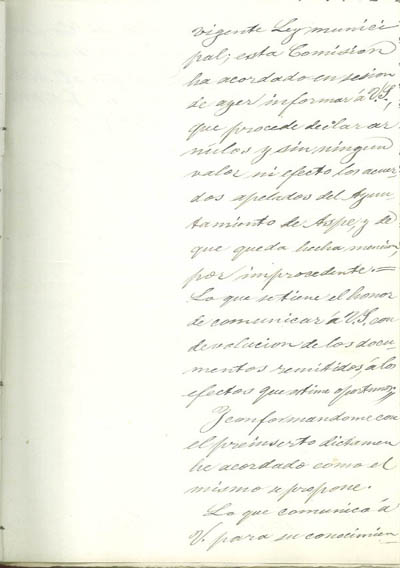 vigente Ley munici
pal; esta Comision
ha acordado en sesion
de ayer informar á V.S,
que procede declarar
nulos y sin ningun
valor ni efecto los acuer-
dos apelados del Ayun-
tamiento de Aspe, y de
que queda hecha mencion,
por improcedente.=
Lo que se tiene el honor
de comunicar á V.S. con
devolucion de los docu-
mentos remitidos, á los
efectos que estime oportunos;
Y conformandome con
el preinserto dictamen
he acordado como el
mismo se propone.
Lo que comunico á
V. para su conocimien